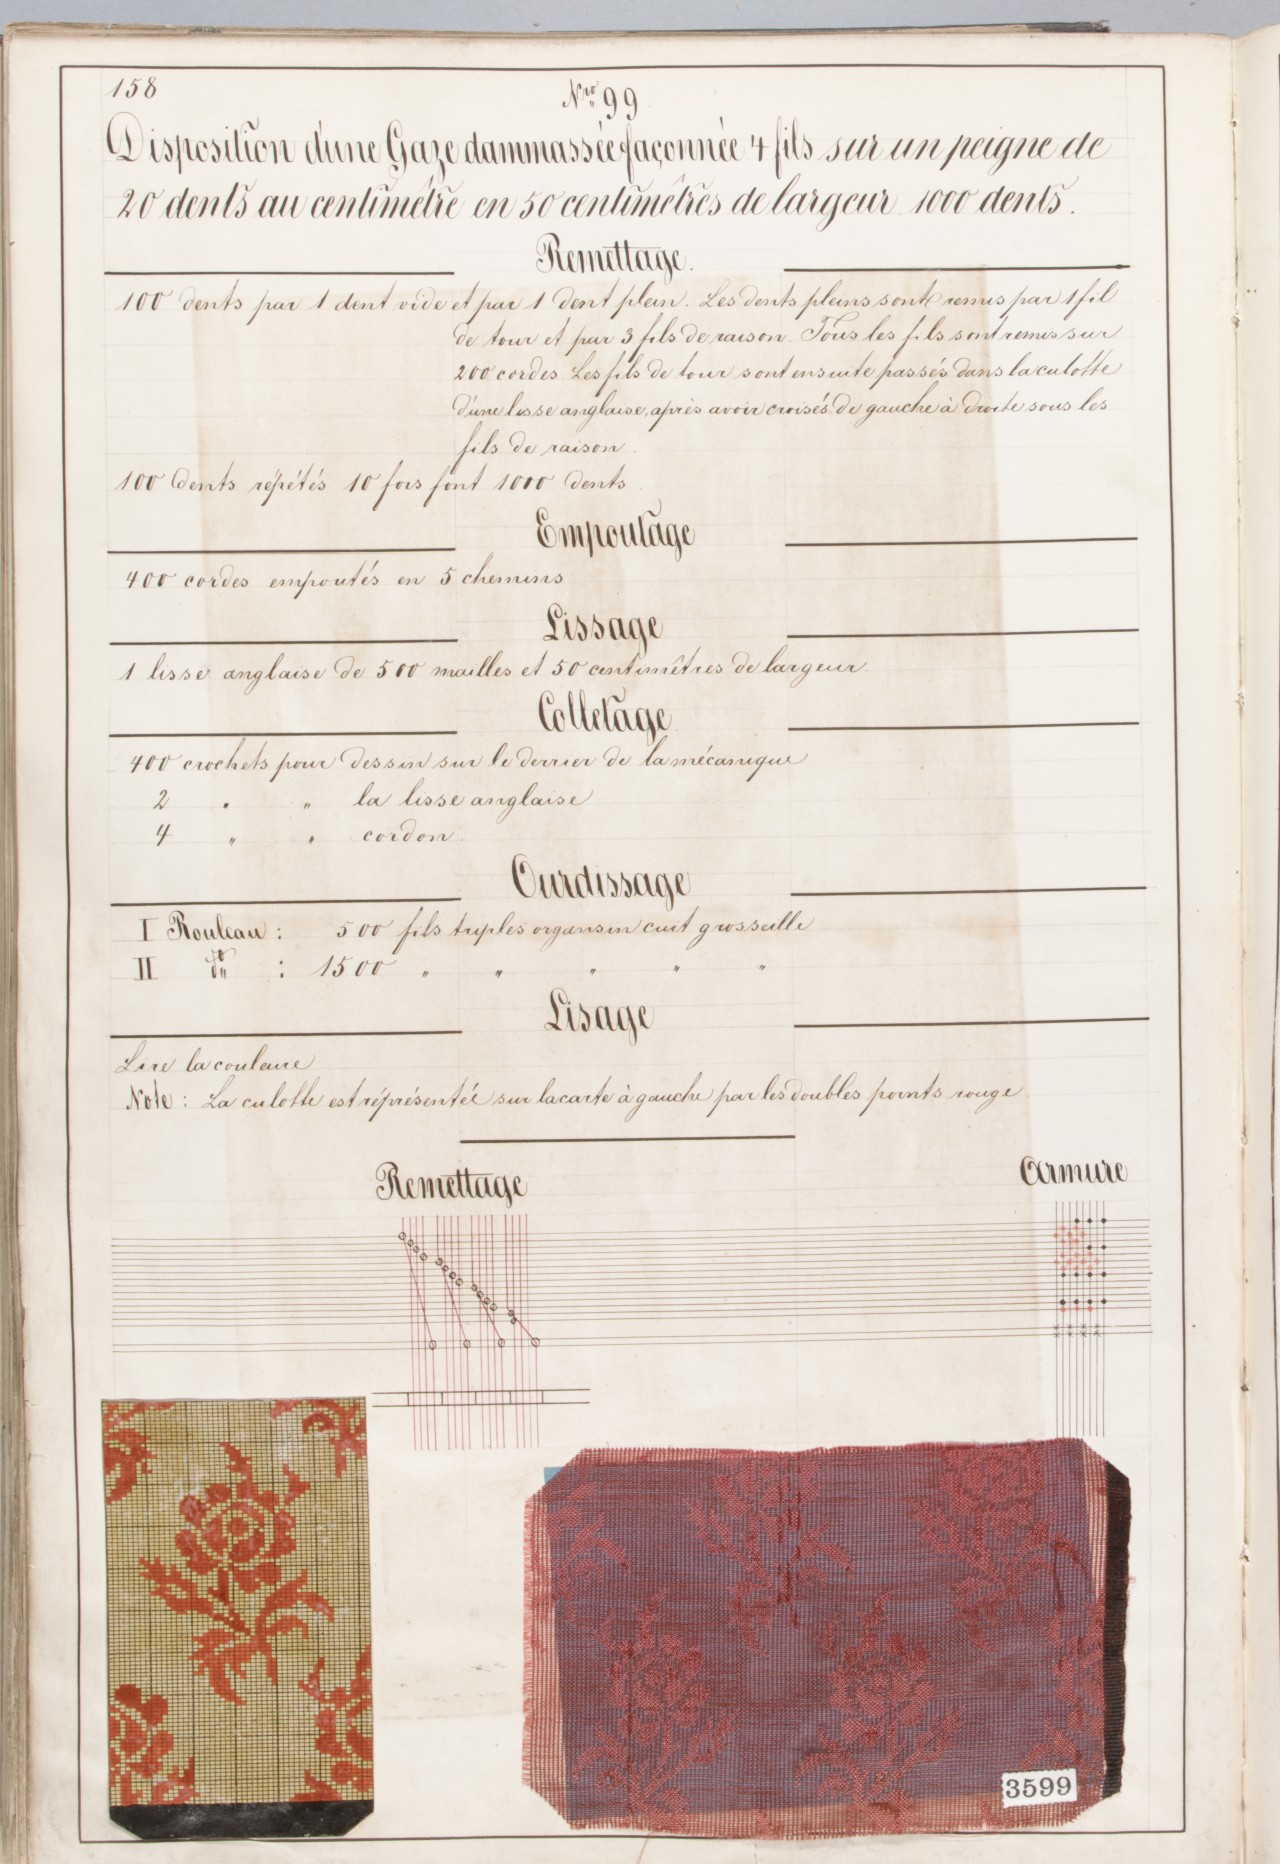 158
Nro 99
Disposition d'une Gaze dammassée façonnée 4 fils sur un peigne de
20 dents au centimêtre en 50 centimêtres de largeur. 1000 dents.
Remettage.
100 dents par 1 dent vide et par 1 dent plein. Les dents pleins sont remis par 1 fil
de tour et par 3 fils de raison. Tous les fils sont remis sur
200 cordes. Les fils de tour sont ensuite passés dans la culotte
d'une lisse anglaise, après avoir croisés de gauche à droite sous les
fils de raison.
100 dents répétés 10 fois font 1000 dents.
Empoutage
400 cordes empoutés en 5 chemins
Lissage
1 lisse anglaise de 500 mailles et 50 centimêtres de largeur.
Colletage
400 crochets pour dessin sur le derrier de la mécanique
2 " " la lisse anglaise
4 " " cordon.
Ourdissage
I Rouleau : 500 fils triples organsin cuit grosseille
II do : 1500 " " " " "
Lisage
Lire la couleure
Note : La culotte est réprésentée sur la carte à gauche par les doubles points rouge.
Remettage
Armure
3599